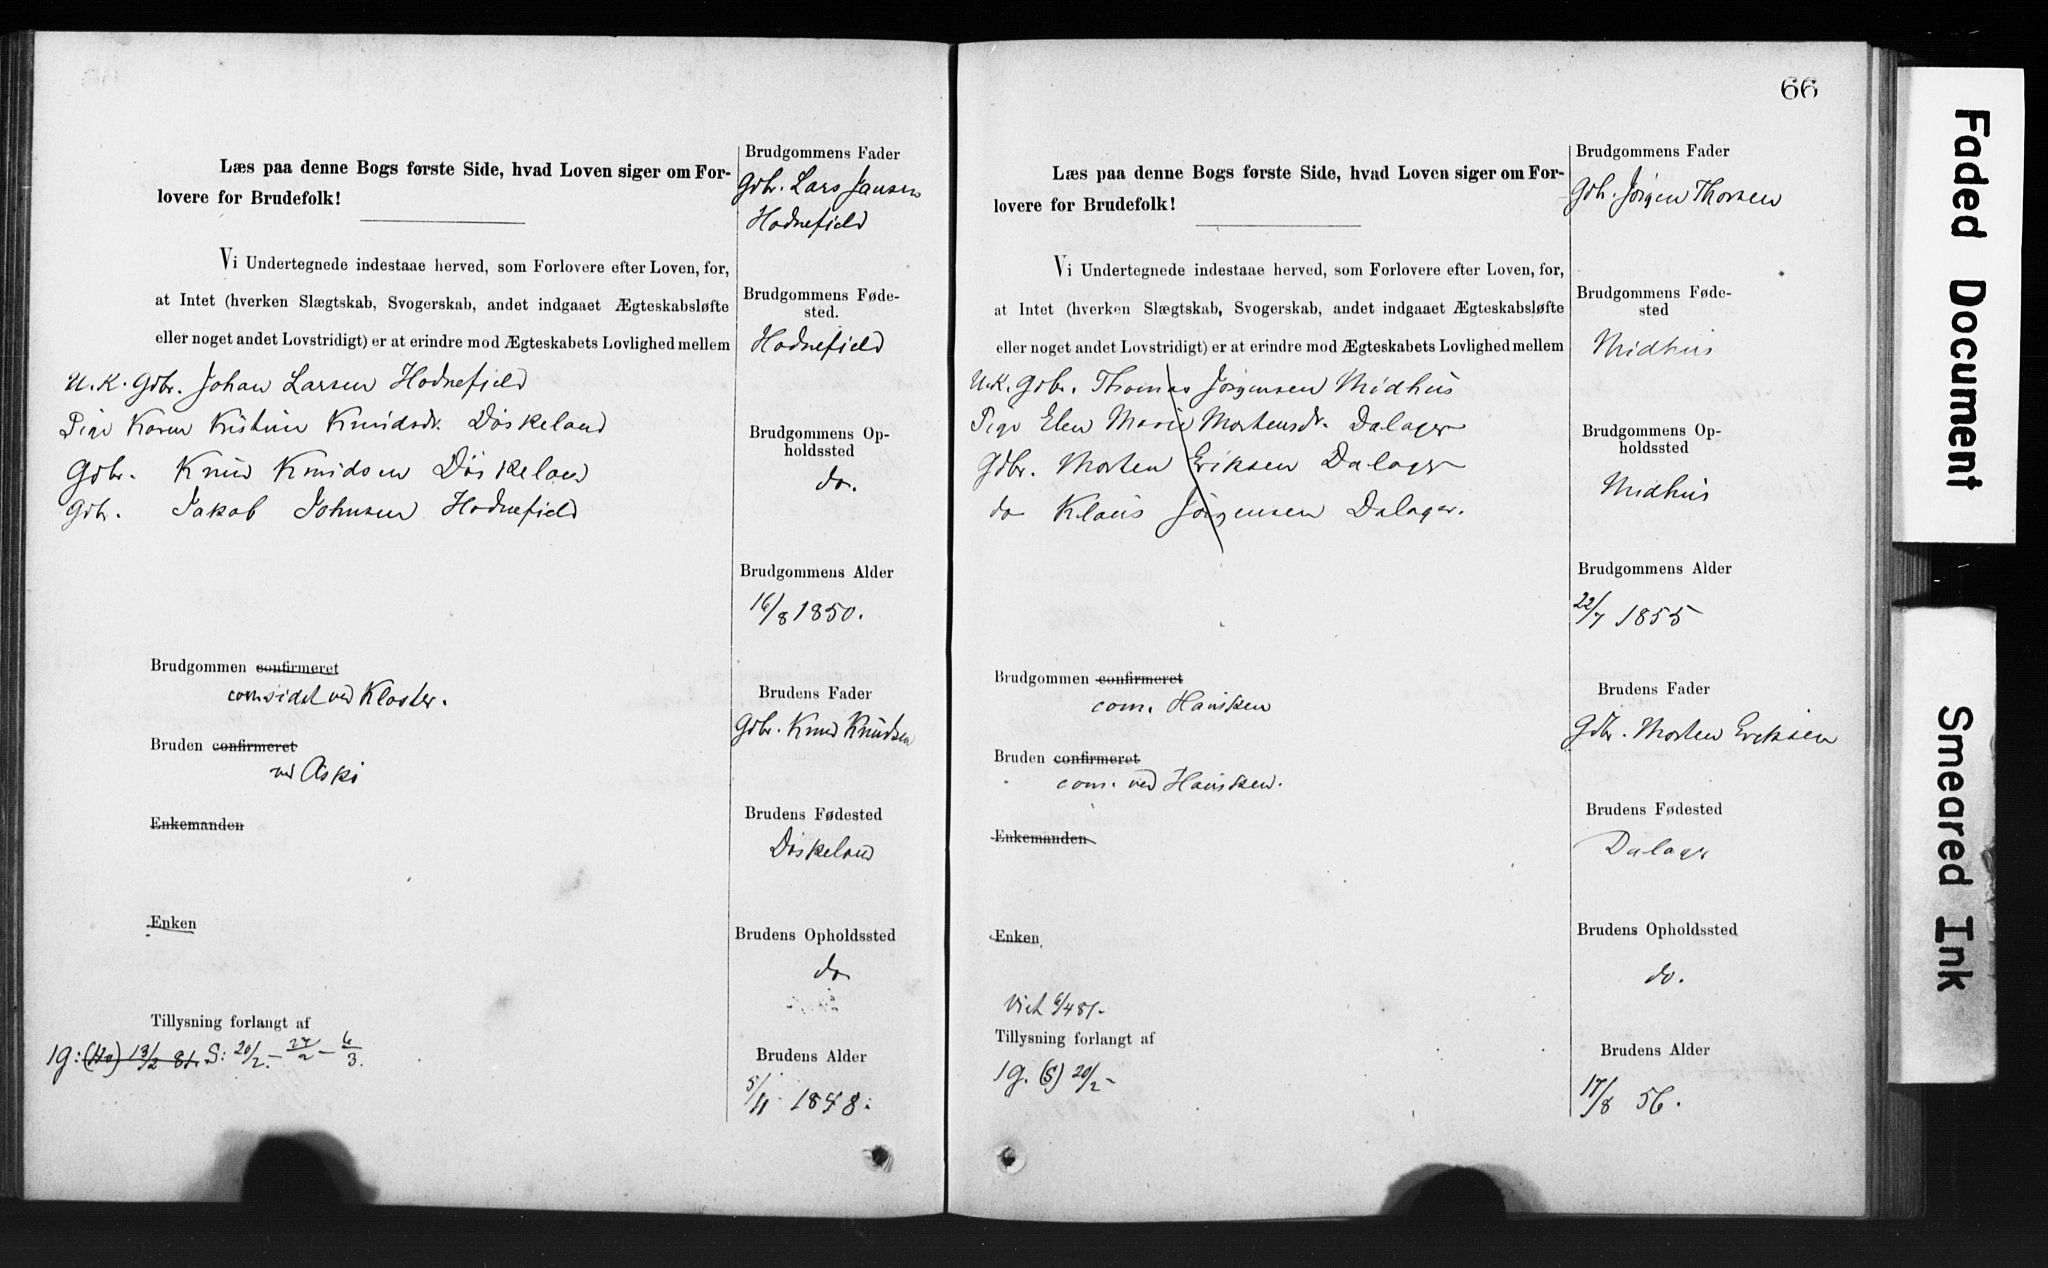 Læs paa denne Bogs første Side, hvad Loven siger om For-
lovere for Brudefolk!
Vi Undertegnede indestaae herved, som Forlovere efter Loven, for,
at Intet (hverken Slægtskab, Svogerskab, andet indgaaet Ægteskabsløfte
eller noget andet Lovstridigt) er at erindre mod Ægteskabets Lovlighed mellem
U. K. Gdbr. Johan Larsen Hodnefjeld
Pige Karen Kristine Knudsdr. Døskeland
Gdbr. Knud Knudsen Døskeland
Gdbr. Jakob Johnsen Hodnefjeld
Brudgommen confirmeret
ved Kloster.
Bruden confirmeret
ved Askø
Enkemanden
Enken
Tillysning forlangt af
1g: (Ho) 13/2 81. S: 20/2 - 27/2 - 6/3.
Brudgommens Fader
Gdbr. Lars Jansen
Hodnefjeld
Brudgommens Føde-
sted.
Hodnefjeld
Brudgommens Op-
holdssted
do.
Brudgommens Alder
16/8 1850.
Brudens Fader
Gdbr. Knud Knudsen
Brudens Fødested
Døskeland
Brudens Opholdssted
do
Brudens Alder
5/11 1848.
66
Læs paa denne Bogs første Side, hvad Loven siger om For-
lovere for Brudefolk!
Vi Undertegnede indestaae herved, som Forlovere efter Loven, for,
at Intet (hverken Slægtskab, Svogerskab, andet indgaaet Ægteskabsløfte
eller noget andet Lovstridigt) er at erindre mod Ægteskabets Lovlighed mellem
U. K. Gdbr. Thomas Jørgensen Midhus
Pige Elen Marie Mortensdr. Dalager
Gdbr. Morten Eriksen Dalager
do Klaus Jørgensen Dalager.
Brudgommen confirmeret
com. Hausken
Bruden confirmeret
com. ved Hausken.
Enkemanden
Enken
Viet 6/4 81.
Tillysning forlangt af
1g. (S) 20/2 -
Brudgommens Fader
Gdb. Jørgen Thorsen
Brudgommens Føde-
sted
Midhus
Brudgommens Op-
holdssted
Midhus
Brudgommens Alder
22/7 1855
Brudens Fader
Gdbr. Morten Eriksen
Brudens Fødested
Dalager
Brudens Opholdssted
do.
Brudens Alder
17/8 56.
Faded Document
Smeared Ink